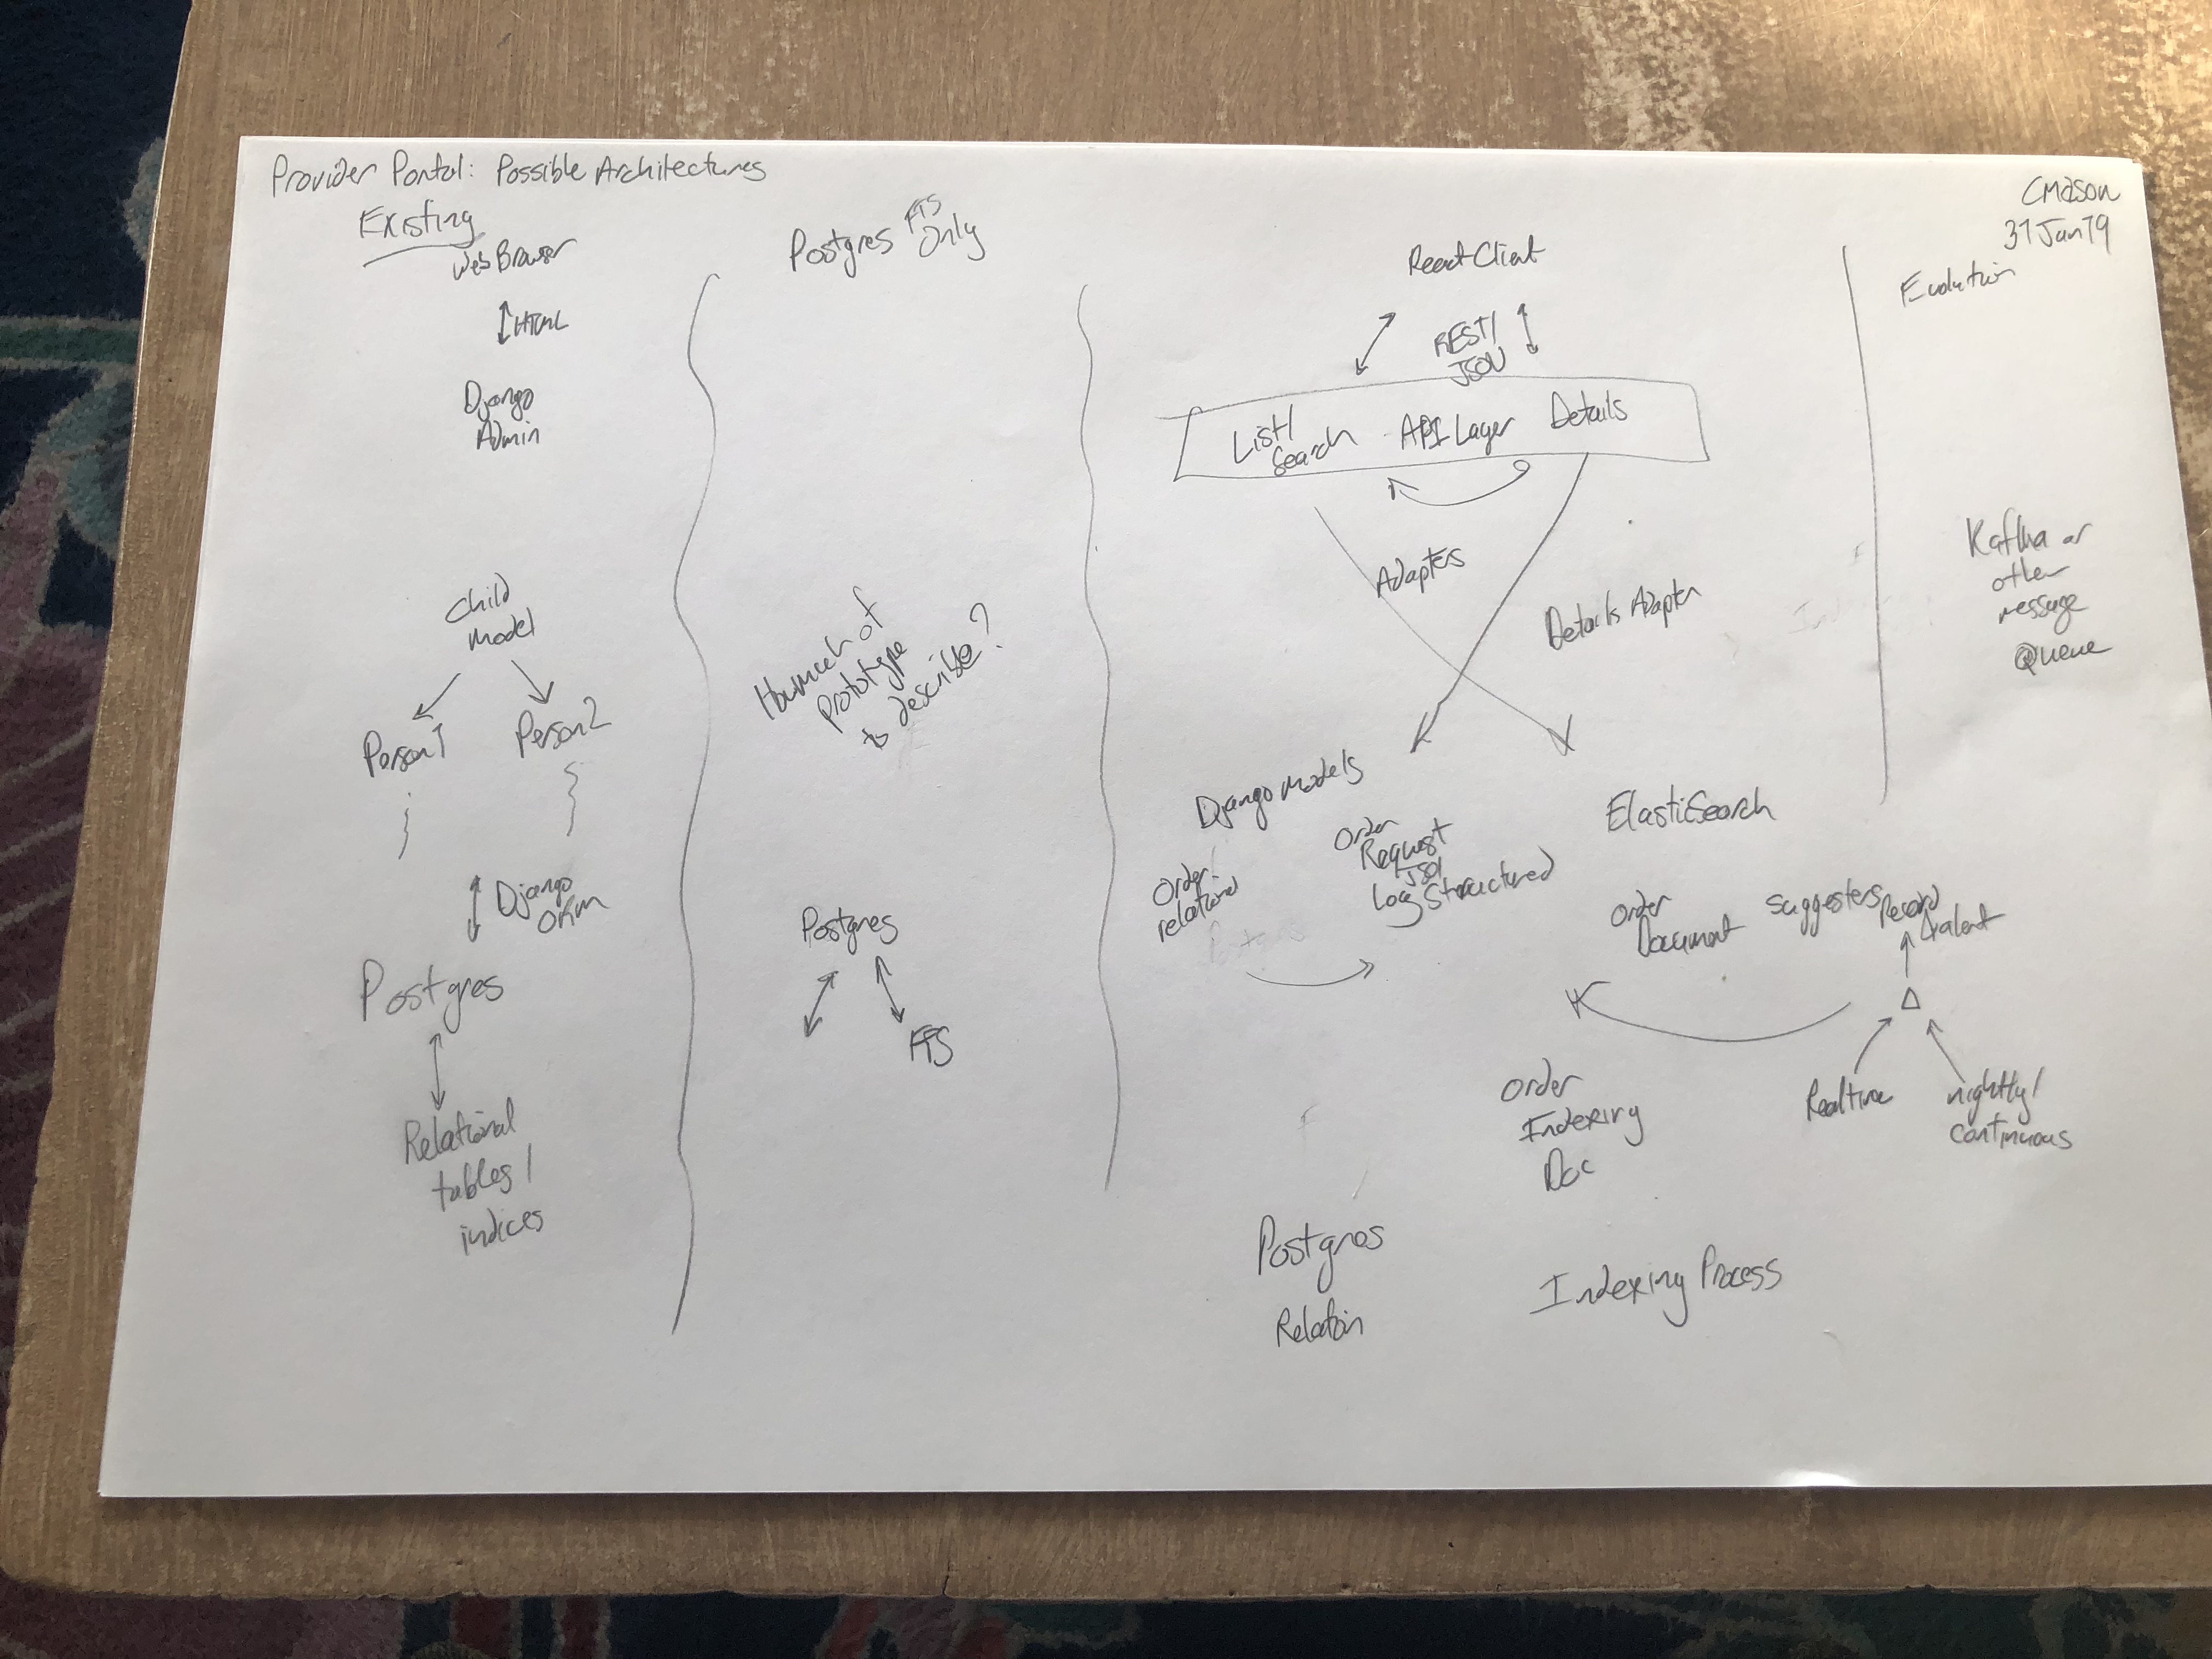 Provider Portal: Possible Architectures
CMason
31 Jan 19
Existing
Web Browser
HTML
Django
Admin
Child
Model
Person 1
Person 2
Django
ORM
Postgres
Relational
tables /
indices
Postgres FTS
Only
How much of
prototype
to describe?
Postgres
FTS
React Client
REST/
JSON
List/
Search
API Layer
Details
Adapters
Details Adapter
Django Models
Order
relational
Order
Request
JSON
Log Structured
Postgres
ElasticSearch
Order
Document
Suggesters
Δ
Realtime
nightly/
continuous
Order
Indexing
Doc
Postgres
Relation
Indexing Process
Evolution
Kafka or
other
message
Queue